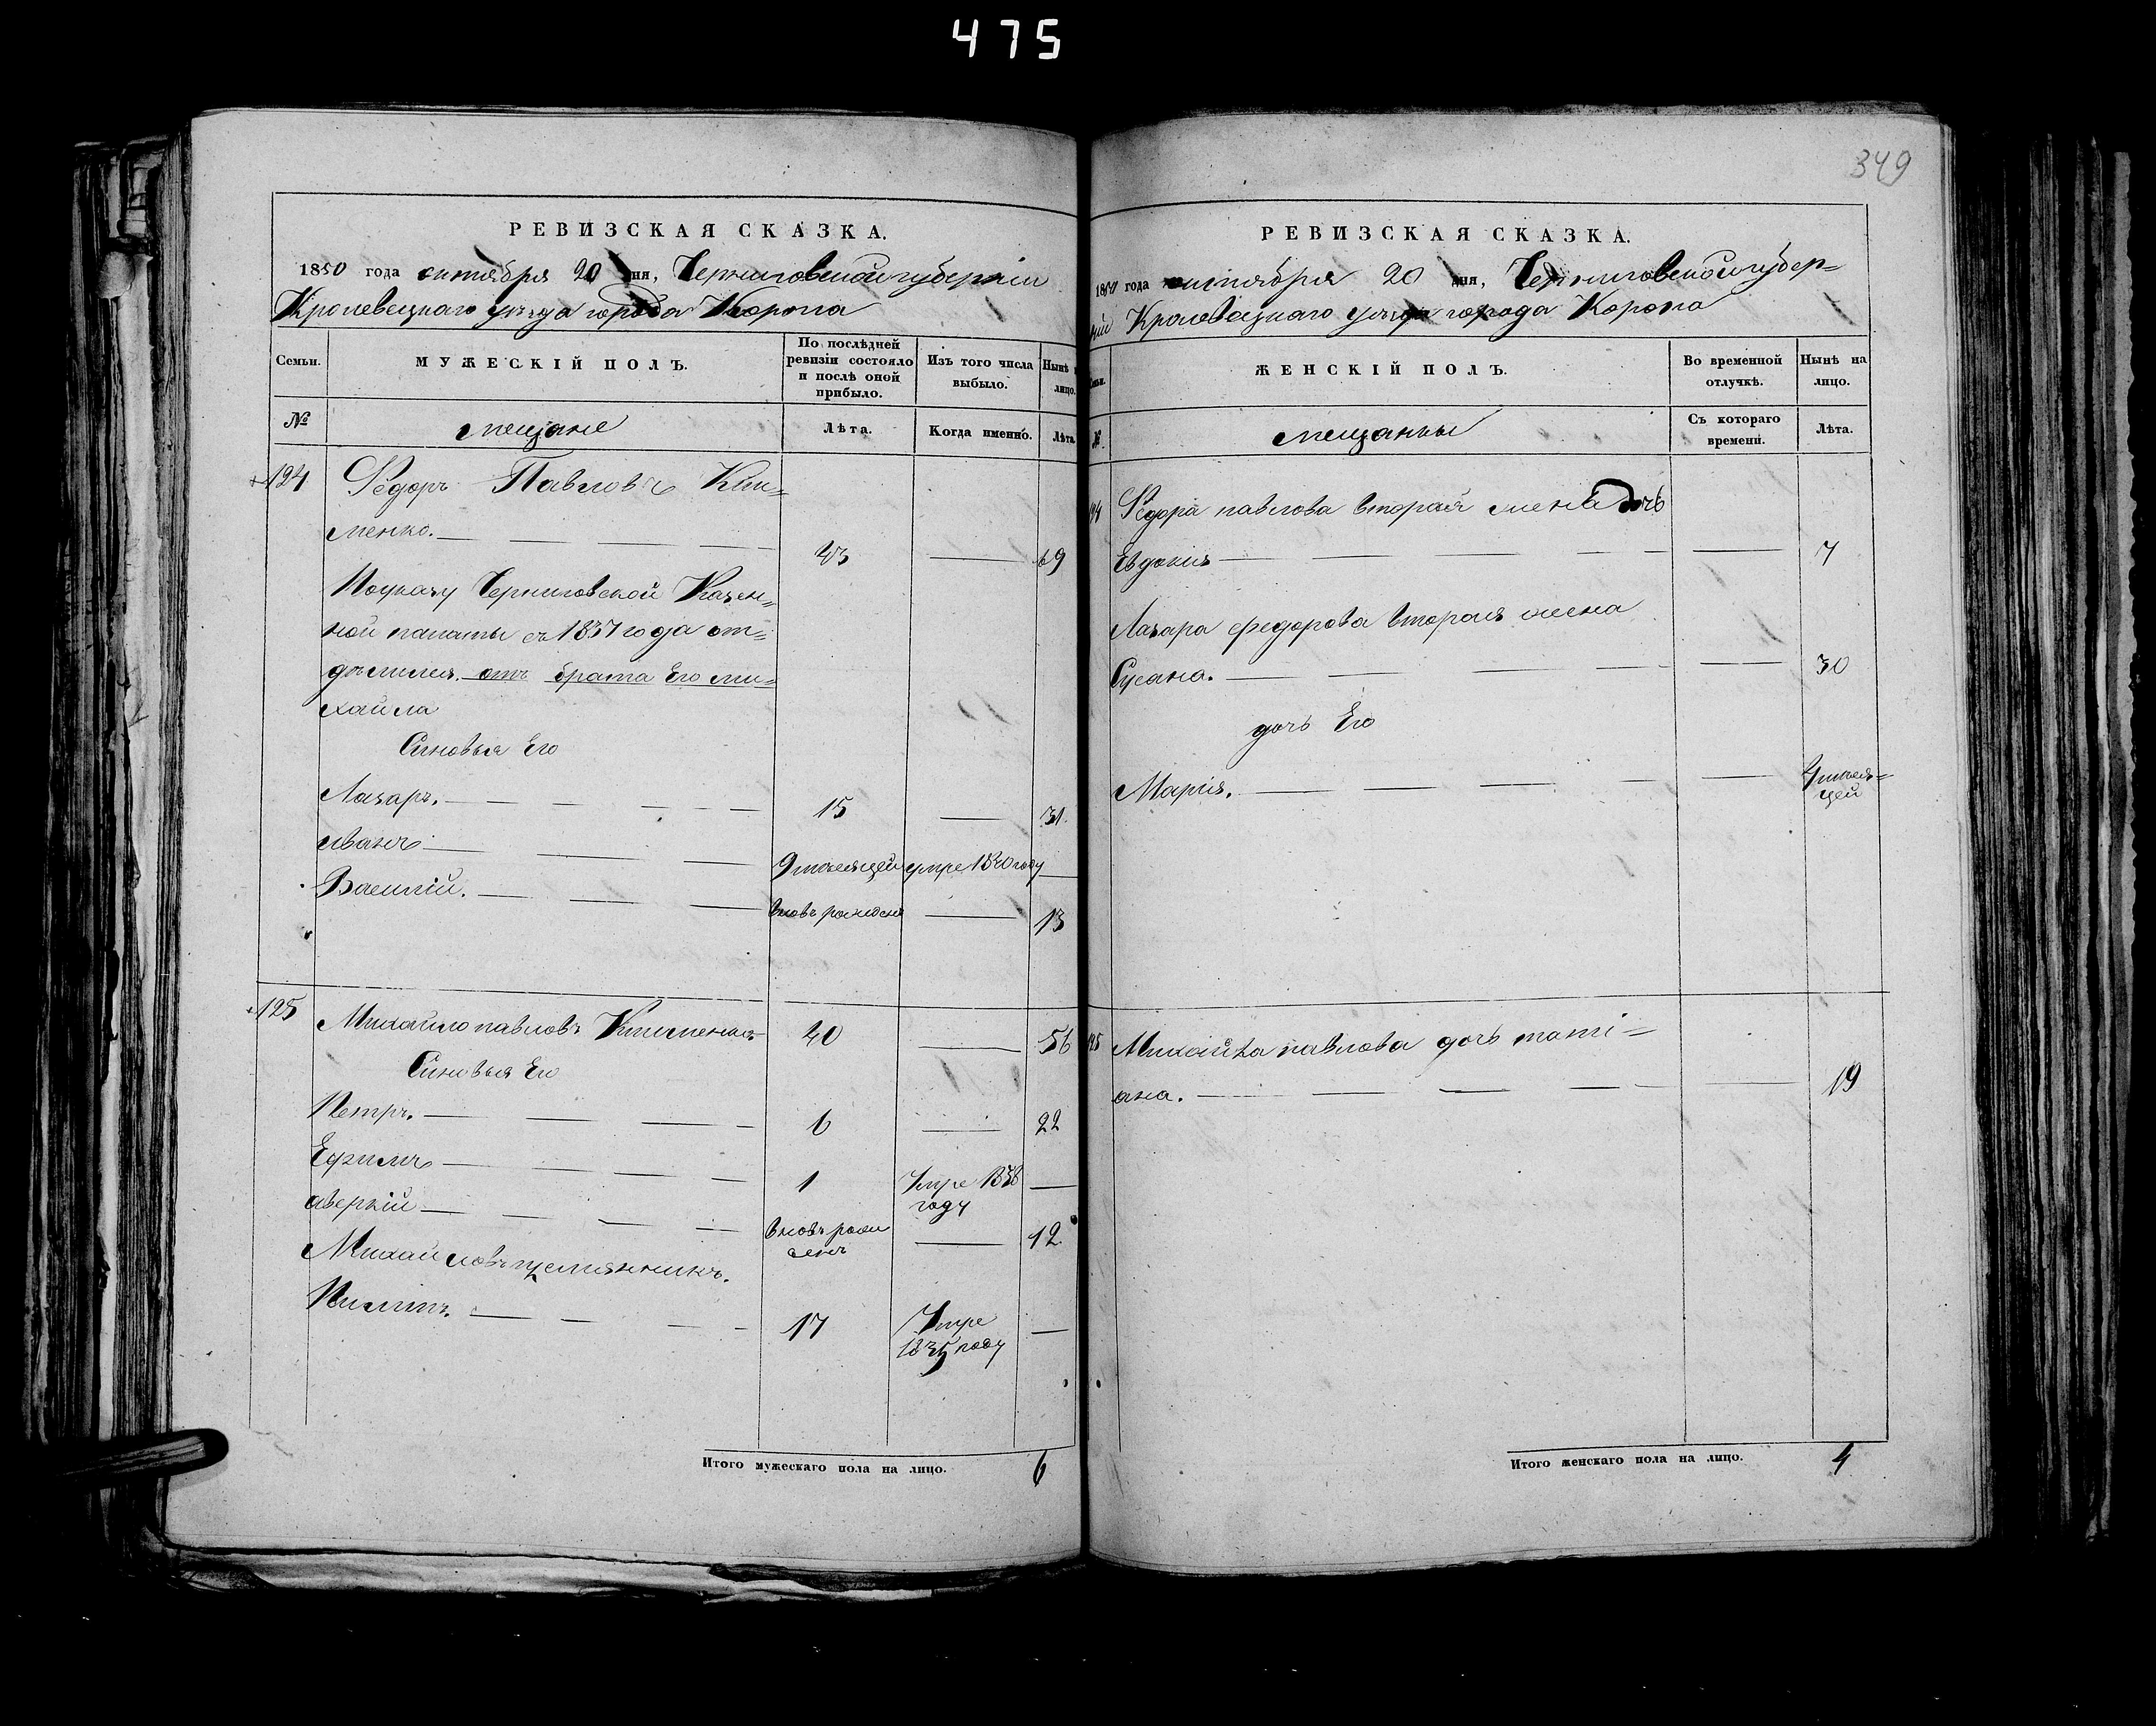 475
РЕВИЗСКАЯ СКАЗКА.
1850 года октября 20 дня, Черниговской губерніи
Кролевецкаго уѣзда города Коропа
Семьи.
МУЖЕСКІЙ ПОЛЪ.
По послѣдней ревизіи состояло и послѣ оной прибыло.
Изъ того числа выбыло.
Нынѣ на лицо.
№
мещане
Лѣта.
Когда именно.
Лѣта
124 Федоръ Павловъ Кли=
менко. 53 69
Поуказу Черниговской Казен=
ной палаты съ 1837 года от=
дѣлился отъ брата Его ми=
хайла
Синовья Его
Лазаръ. 15 31.
иванъ 9 месяцей умре 1840 году
Василій. вновь рожденъ 13
125 Михайло павловъ Клименко 40 56
Синовья Его
Петръ. 6 22
Ефимъ 1 Умре 1838
году
аверкій вновь рож 12
денъ
Михайловъ племянникъ.
Пилипъ. 17 Умре
1835 году
Итого мужескаго пола на лицо. 6
349
РЕВИЗСКАЯ СКАЗКА.
1850 года октября 20 дня, Черниговской губер=
ніи Кролевецкаго уѣзда города Коропа
ЖЕНСКІЙ ПОЛЪ.
Во временной отлучкѣ.
Нынѣ на лицо.
№.
мещанки
Съ котораго времени.
Лѣта.
124 Федора павлова вторая жена дочь
Евдокия 7
Лазара федорова вторая жена
Сусана. 30
дочь Его
Марія. 4 месяцей
125 Михайла павлова дочь тати=
ана. 19
Итого женскаго пола на лицо. 4